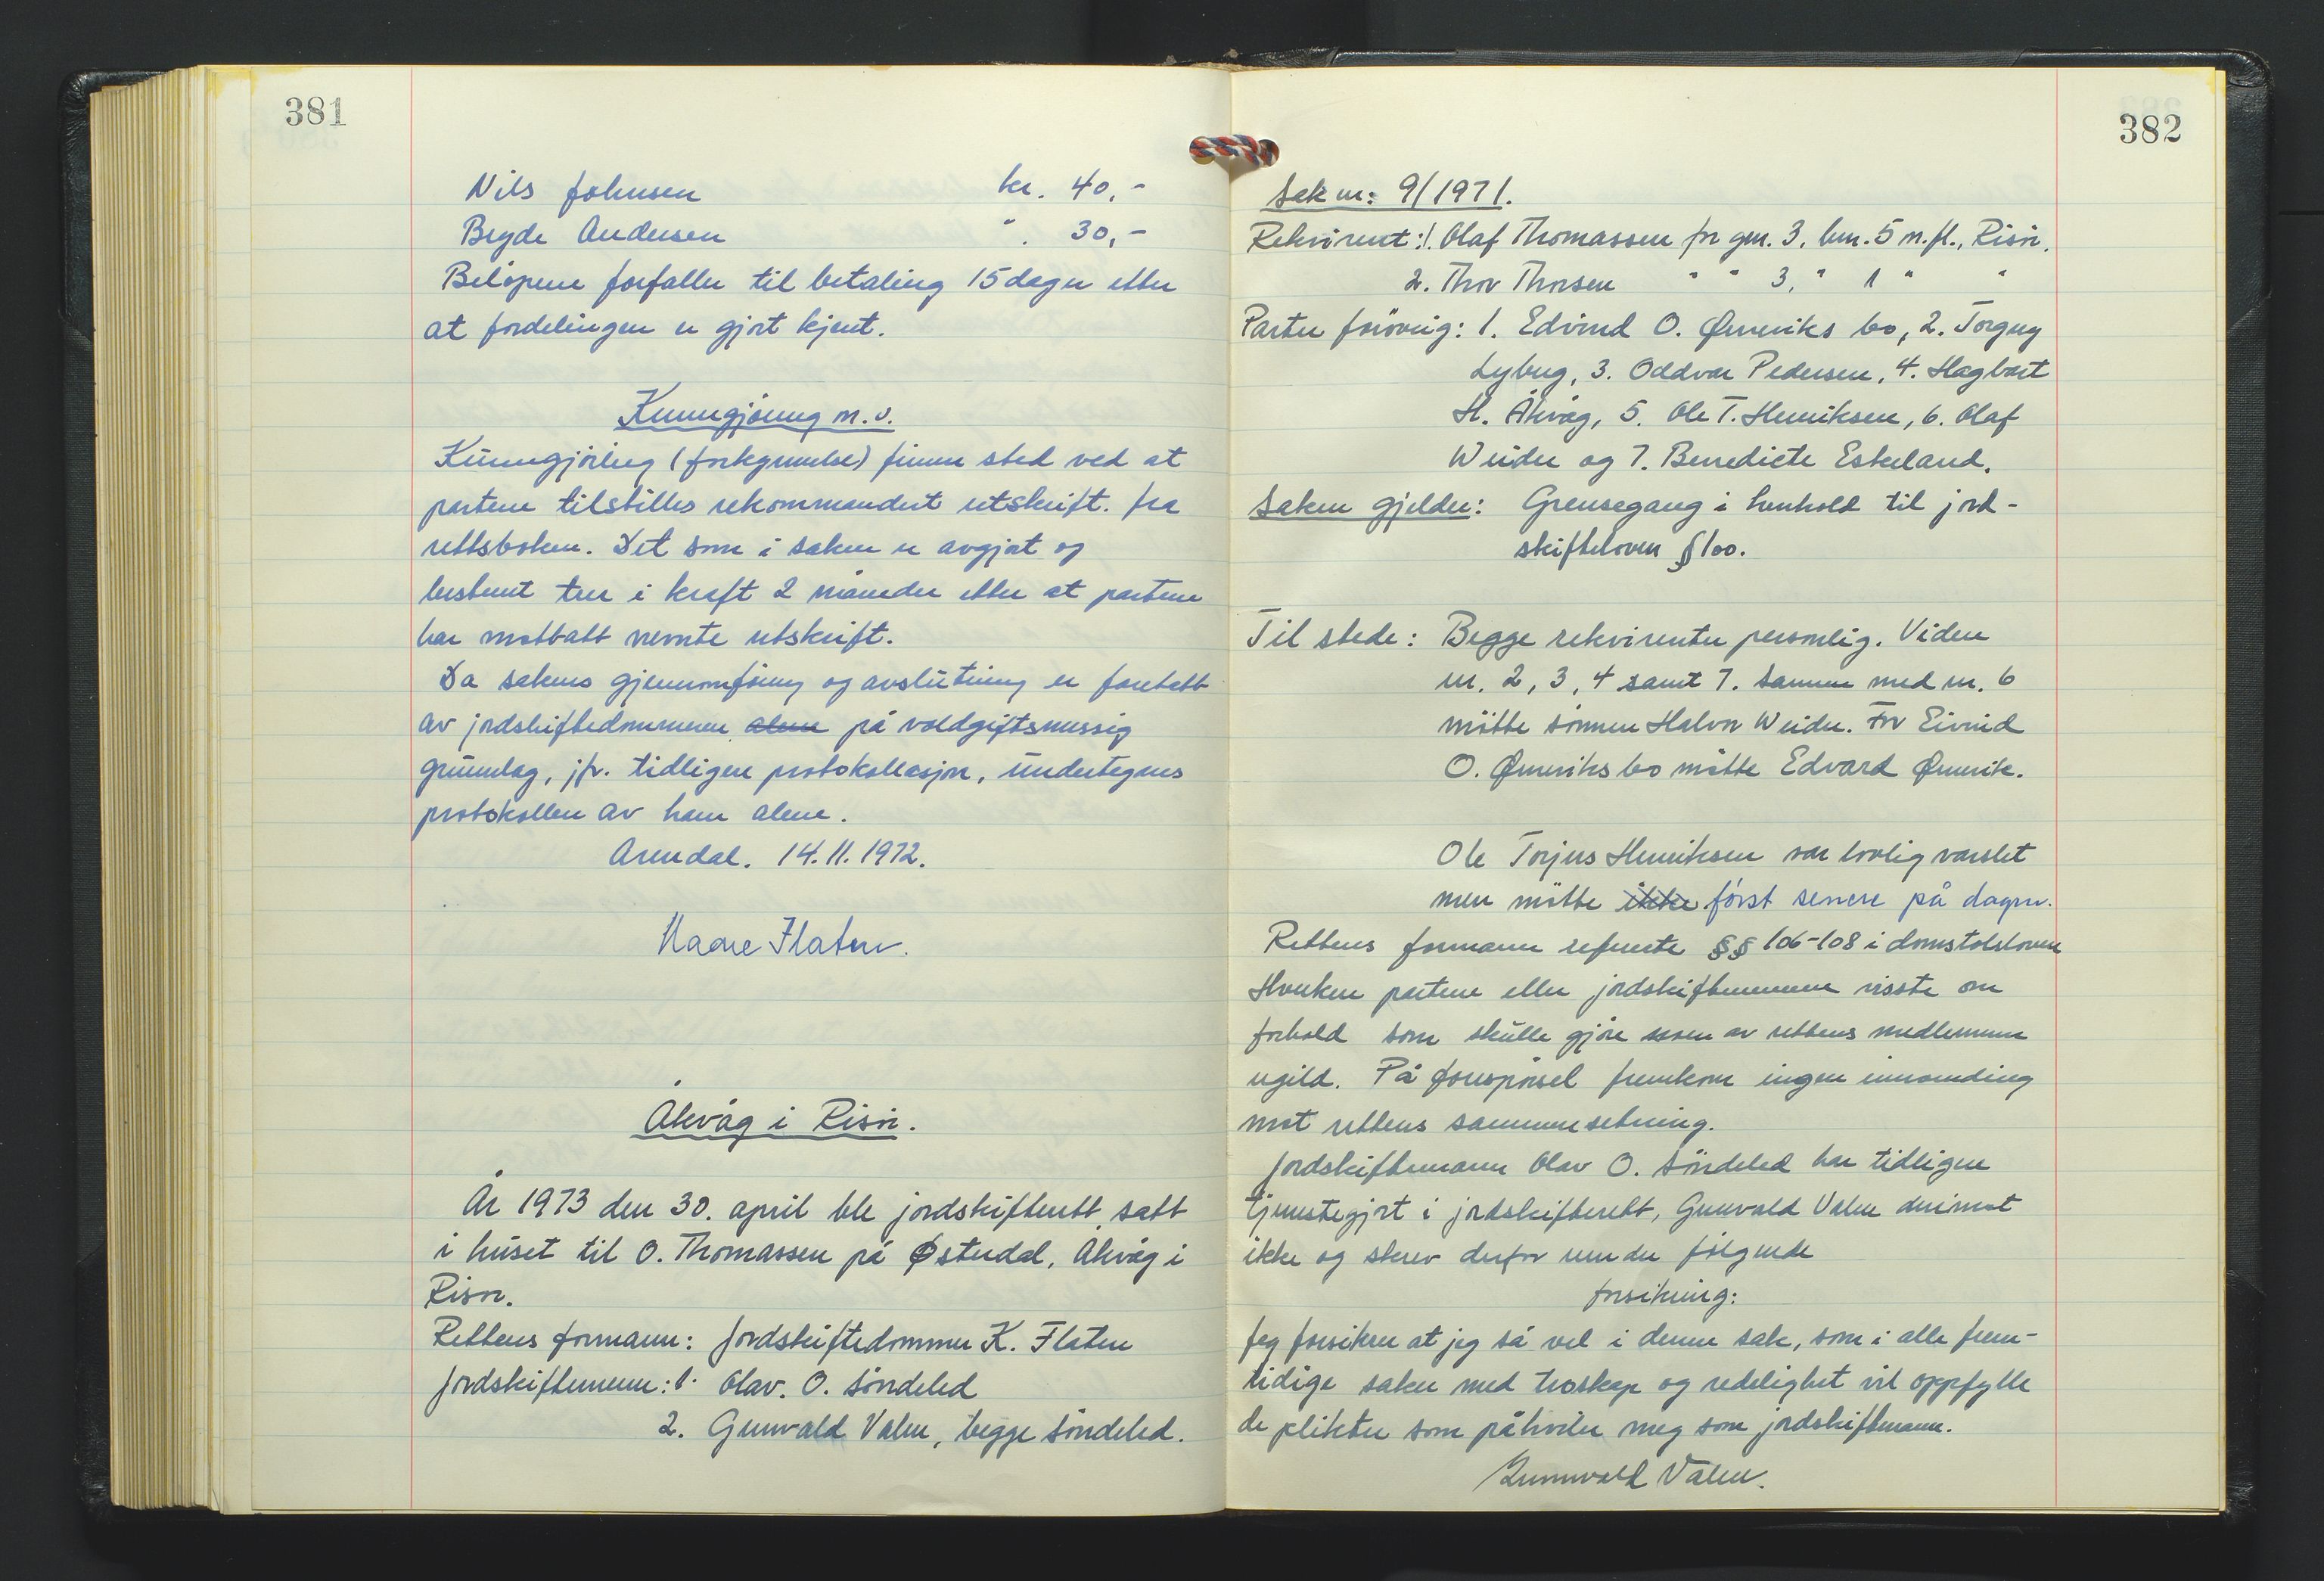 381
Nils Johnsen kr. 40,-
Brgde Andersen " . 30,-
Belöpene forfaller til betaling 15 dager etter
at fordelingen er gjort kjent.
Kunngjöring m.v.
Kunngjöring (forkynnelse) finner sted ved at
partene tilstilles rekommandert utskrift. fra
rettsboken. Det som i saken er avgjort og
bestemt trer i kraft 2 måneder etter at partene
har mottatt nevnte utskrift.
Da sakens gjennomföring og avslutning er foretatt
av jordskiftedommeren alene på voldgiftsmessig
grunnlag, jfr. tidligere protokollasjon, undertegnes
protokollen av ham alene.
Arendal. 14.11.1972.
Kaare Flaten.
Åkvåg i Risör.
År 1973 den 30. april ble jordskifterett satt
i huset til O. Thomassen på Østerdal, Åkvåg i
Risör.
Rettens formann: Jordskiftedommer K. Flaten
Jordskiftemenn: 1. Olav. O. Söndeled
2. Gunvald Valen, begge Söndeled.
382
Sak nr: 9/1971.
Rekvirent: 1. Olaf Thomassen for gnr. 3, bnr. 5 m.fl., Risör.
2. Thor Thorsen " " 3, " 1 " "
Parter forövrig: 1. Edvind O. Ømeriks bo, 2. Torgny
Lyberg, 3. Oddvar Pedersen, 4. Hagbart
H. Åkvåg, 5. Ole T. Henriksen, 6. Olaf
Weider og 7. Benedicte Eskeland.
Saken gjelder: Grensegang i henhold til jord-
skifteloven § 100.
Til stede: Begge rekvirenter personlig. Videre
nr. 2, 3, 4 samt 7. Sammen med nr. 6
mötte sönnen Halvor Weider. For Eivind
O. Ømeriks bo mötte Edvard Ømerik.
Ole Torjus Henriksen var lovlig varslet
men mötte ikke först senere på dagen.
Rettens formann refererte §§ 106-108 i domstolsloven
Hverken partene eller jordskiftemennene visste om
forhold som skulle gjöre noen av rettens medlemmer
ugild. På forespörsel fremkom ingen innvending
mot rettens sammensetning.
Jordskiftemann Olav O. Söndeled har tidligere
tjenestegjort i jordskifterett, Gunvald Valen derimot
ikke og skrev derfor under fölgende
forsikring:
Jeg forsikrer at jeg så vel i denne sak, som i alle frem-
tidige saker med troskap og redelighet vil oppfylle
de plikter som påhviler meg som jordskiftemann.
Gunnvald Valen.